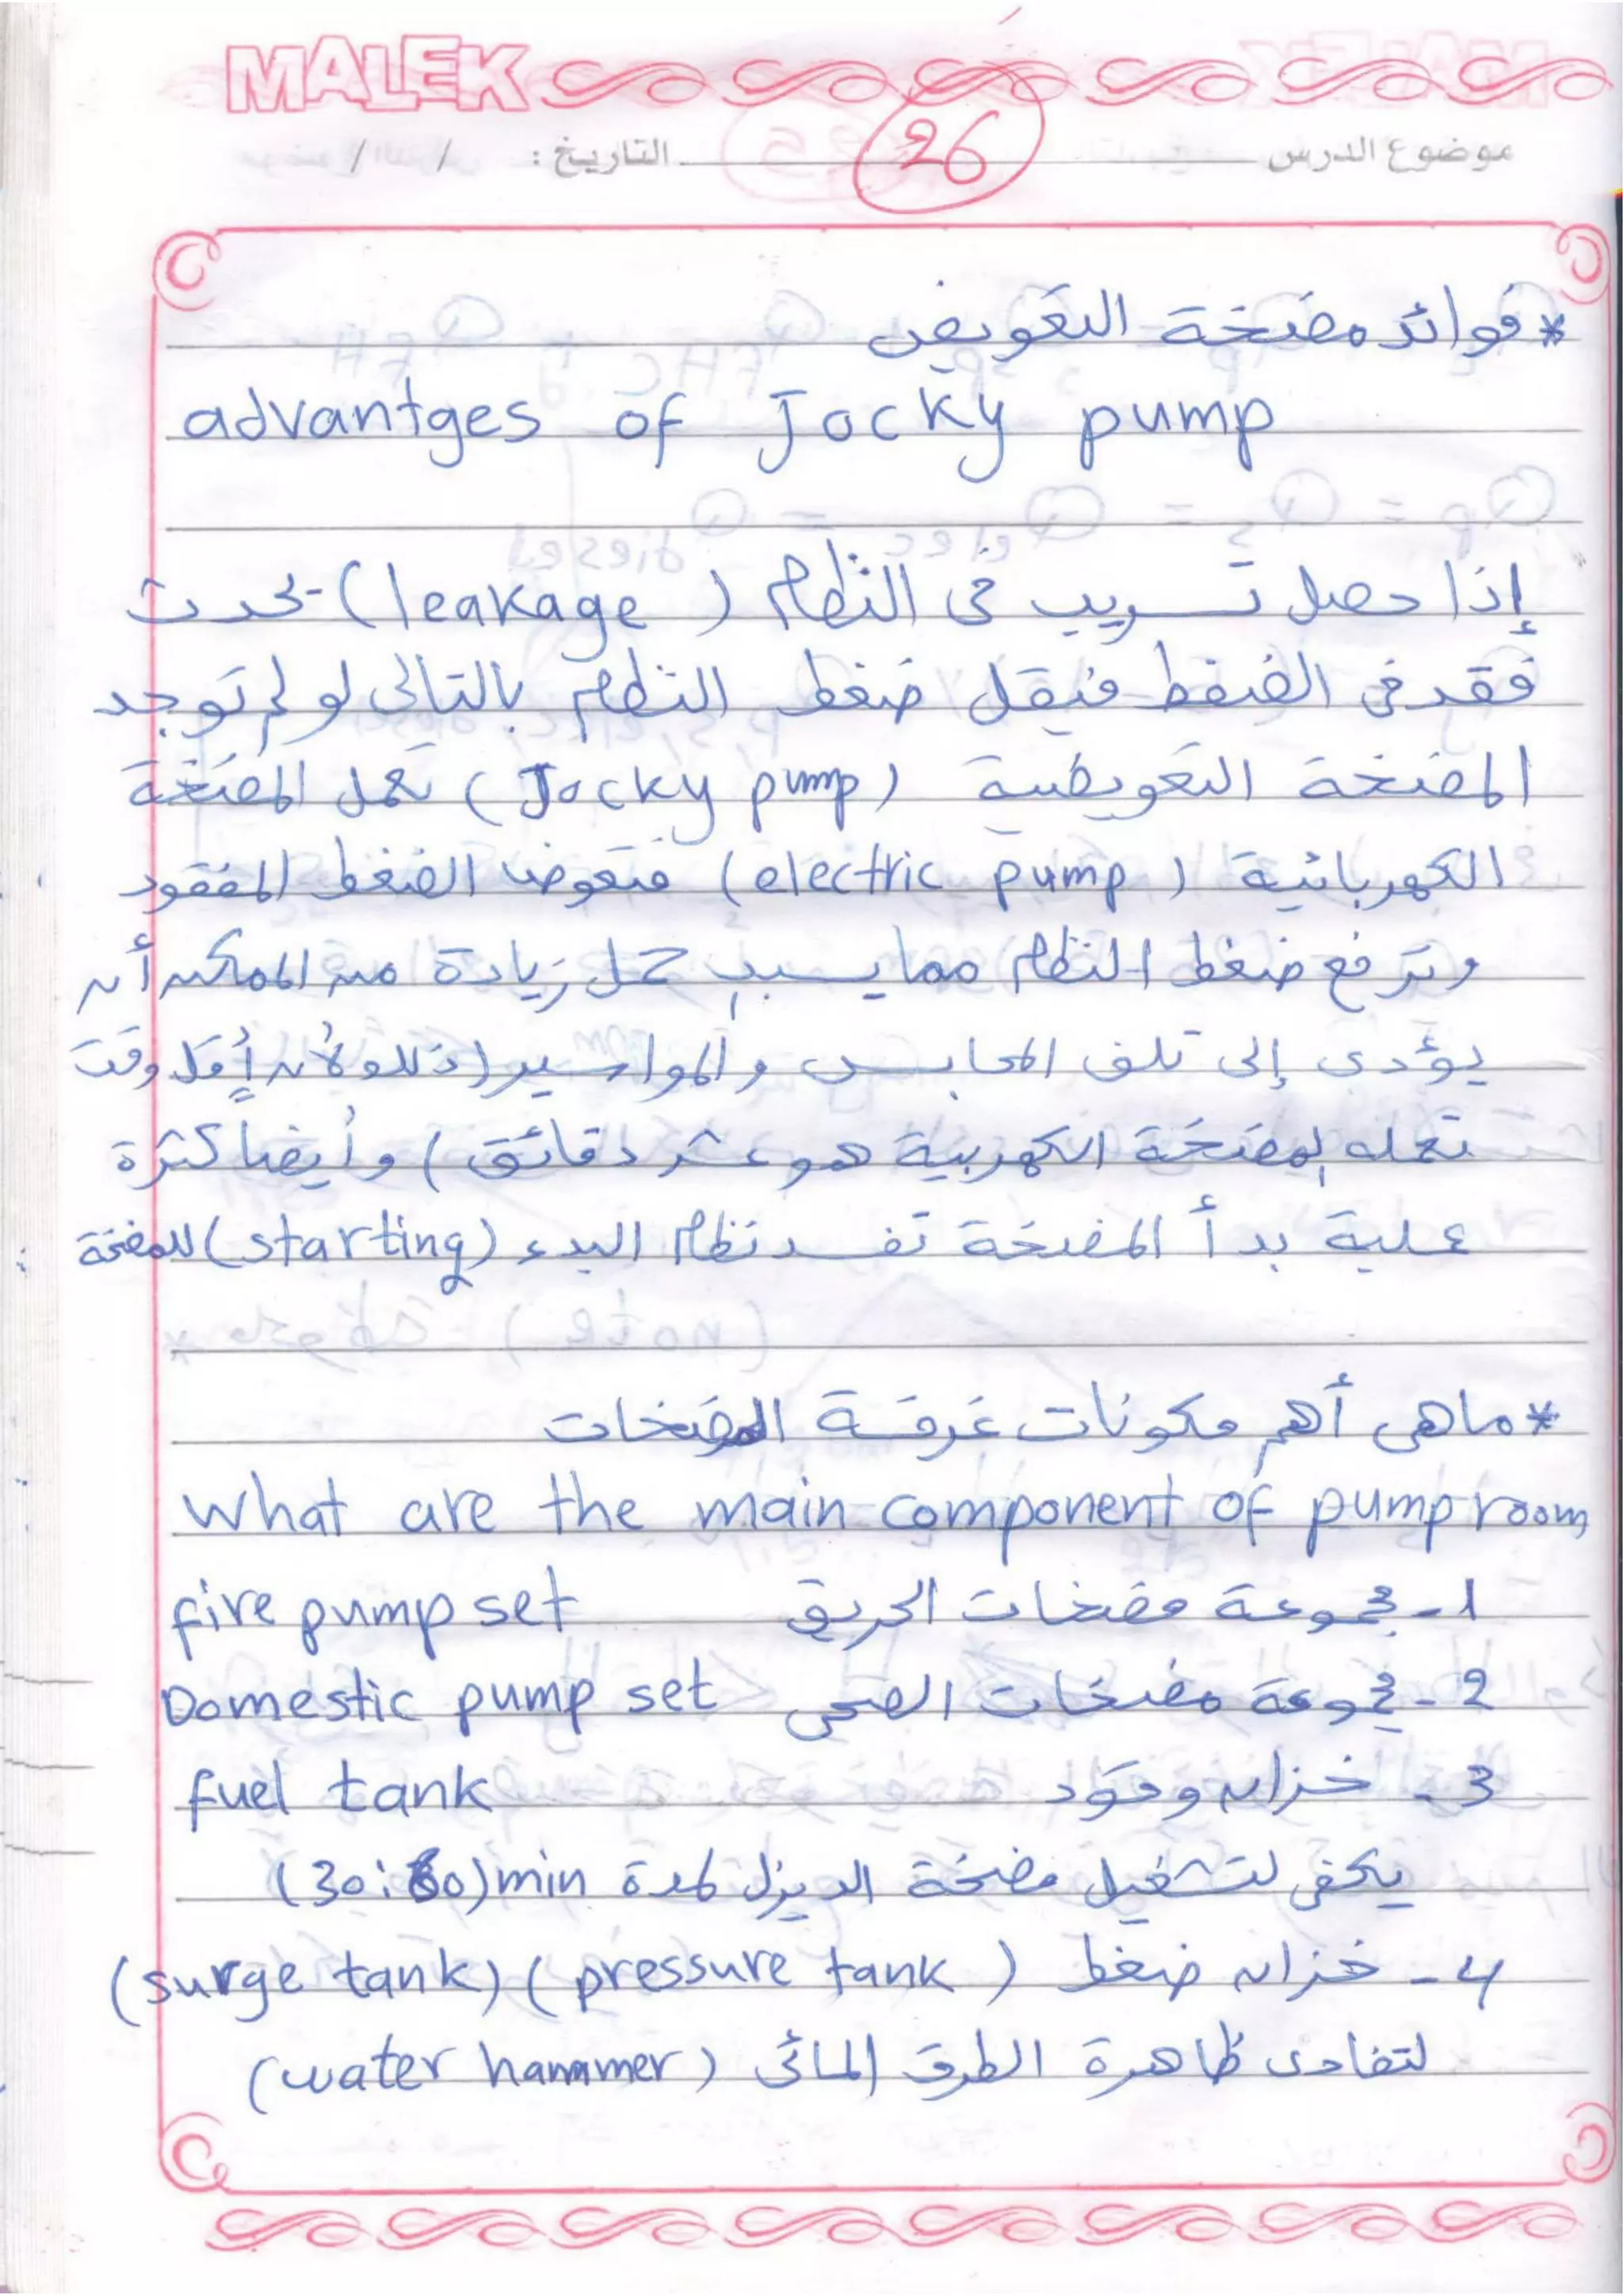 MALEK
موضوع الدرس 26 التاريخ : / /
* فوائد مضخة التعويض
advantges of Jocky pump
إذا حصل تسريب فى النظام ( leakage ) يحدث
فقد فى الضغط فيقل ضغط النظام بالتالى لو لم توجد
المضخة التعويضية (Jocky pump) تعمل المضخة
الكهربائية (electric pump) فتعوض الضغط المفقود
وترفع ضغط النظام مما يسبب حمل زيادة من الممكن أن
يؤدى إلى تلف المحابس والمواسير (ذلك لأن أقل وقت
تعمله المضخة الكهربية هو عشر دقائق) وأيضا كثرة
عملية بدأ المضخة تفسد نظام البدء (starting) للمضخة
* ماهى أهم مكونات غرفة المضخات
What are the main component of pump room
1- مجموعة مضخات الحريق fire pump set
2- مجموعة مضخات الصحى Domestic pump set
3- خزان وقود fuel tank
يكفى لتشغيل مضخة الديزل لمدة (30:60)min
4- خزان ضغط ( pressure tank ) (surge tank)
لتفادى ظاهرة الطرق المائى (water hammer)